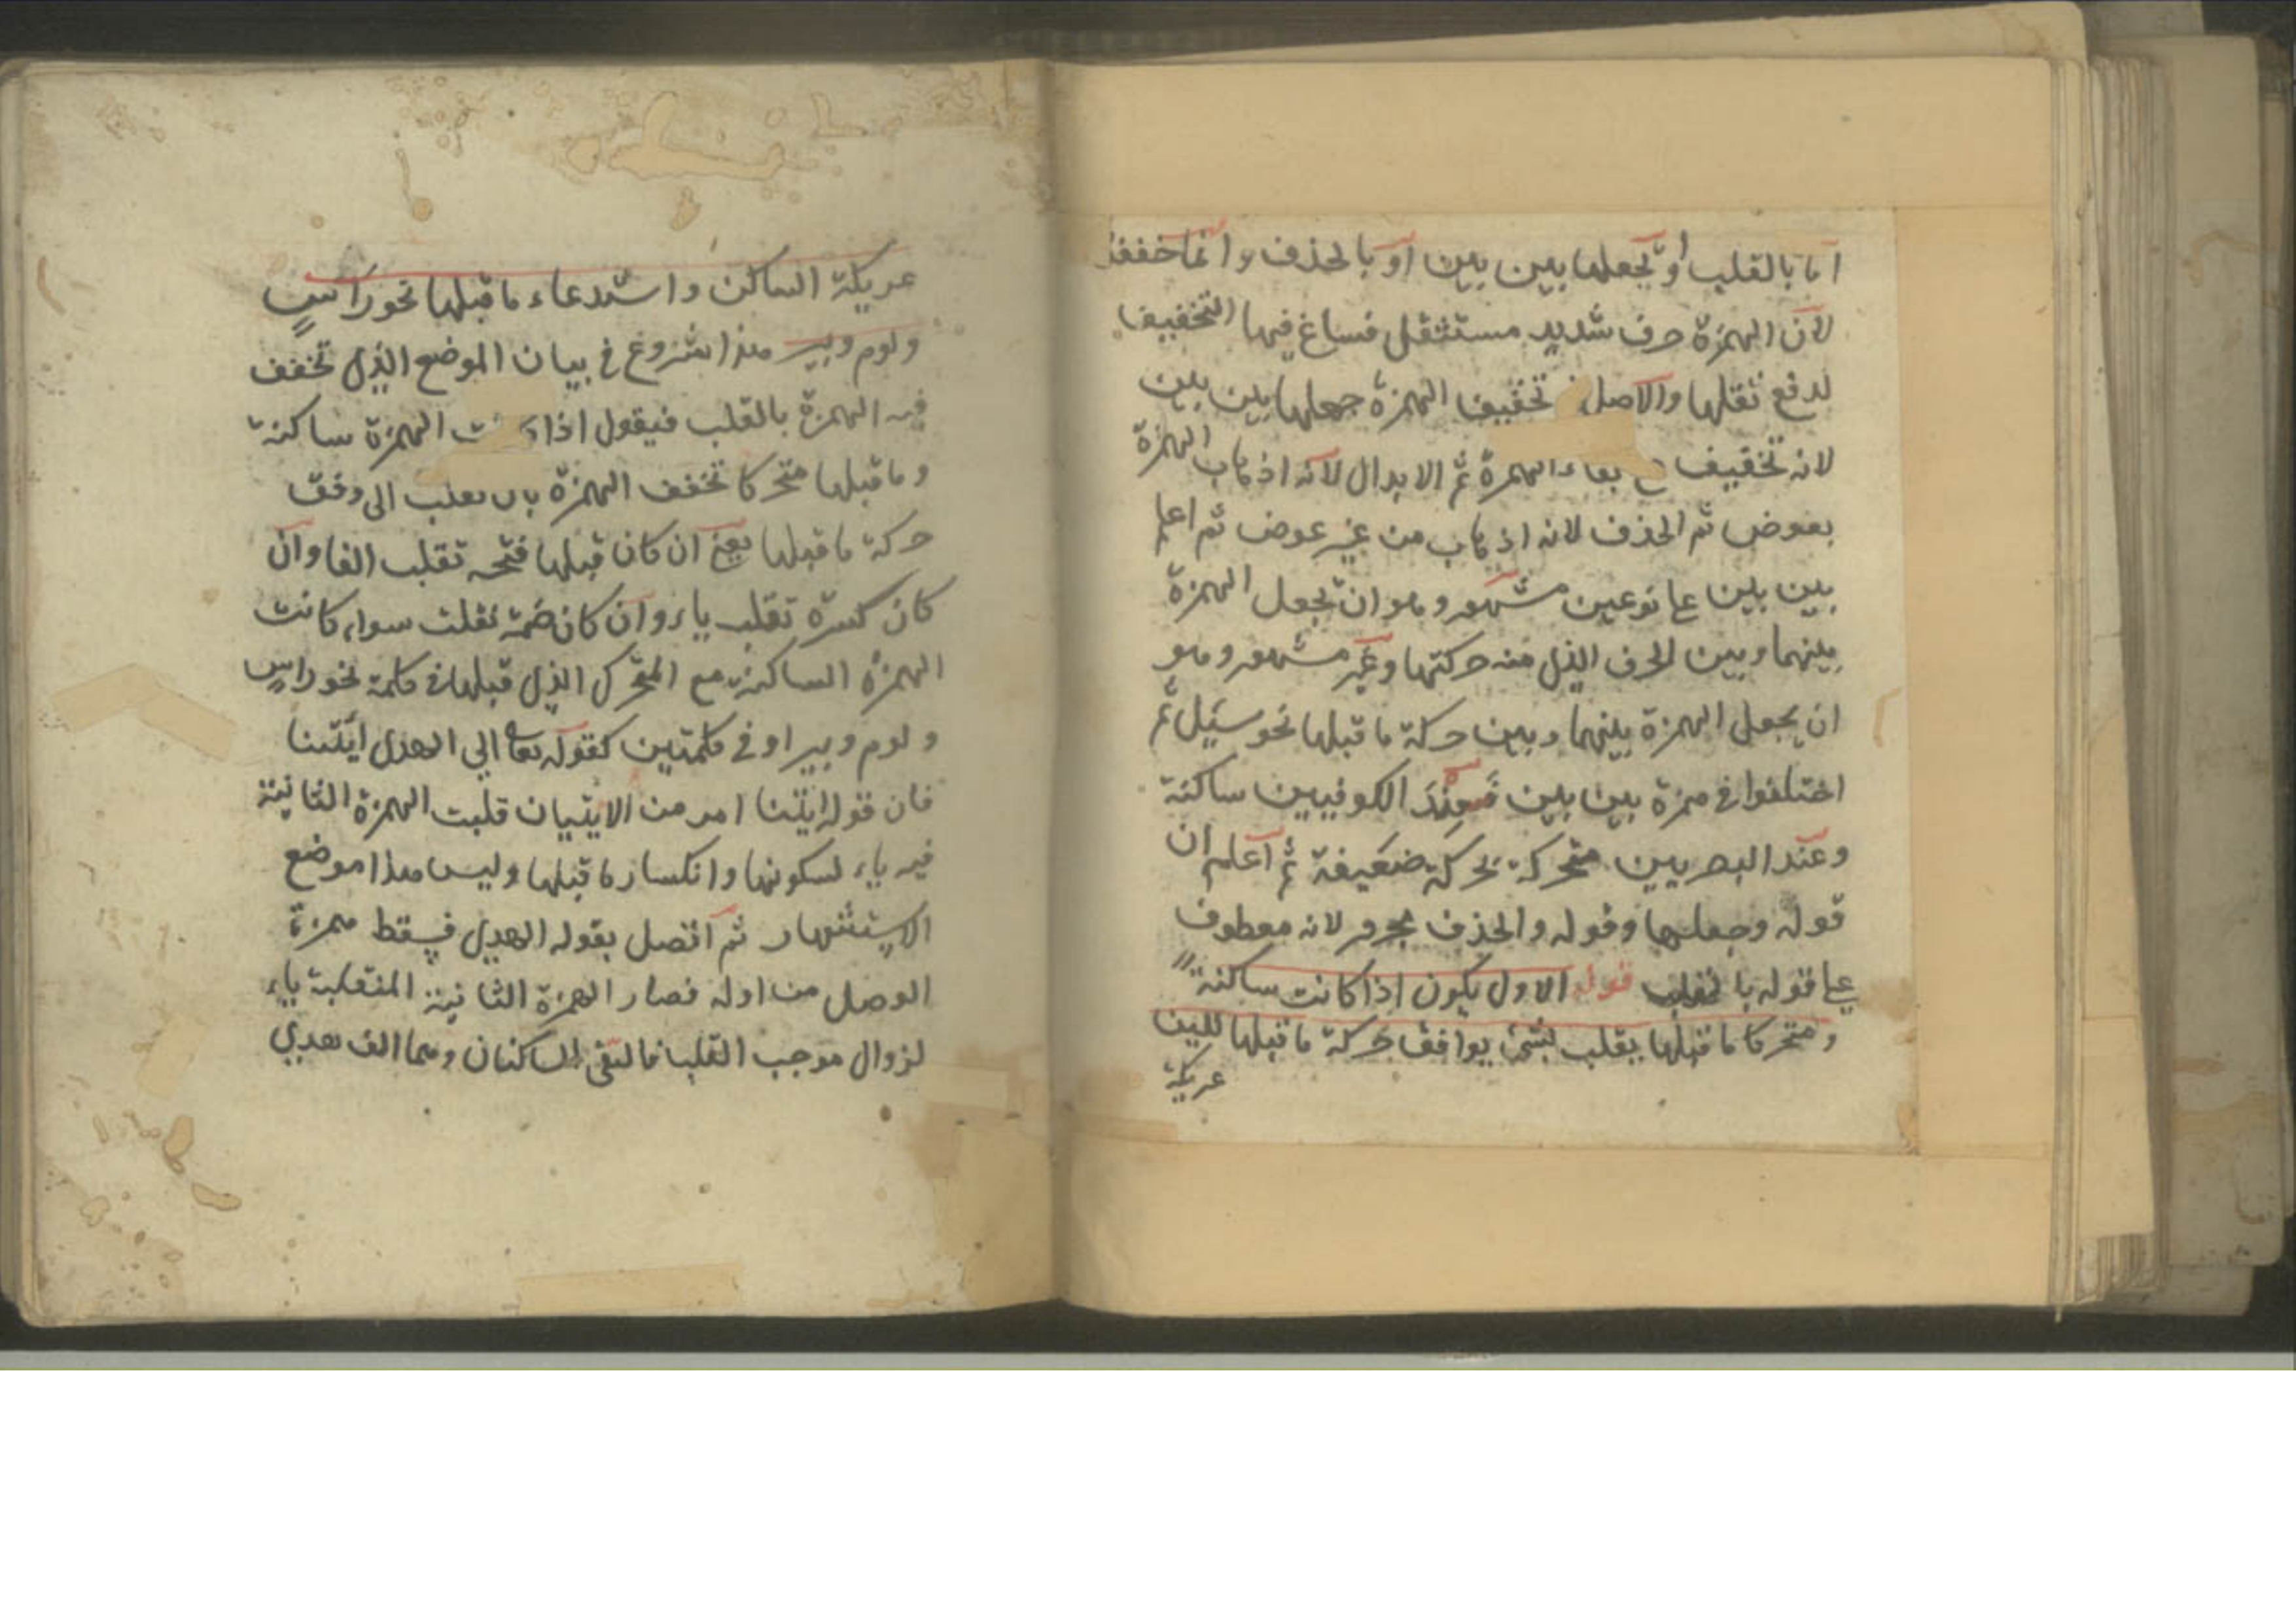 اما بالقلب او بجعلها بين بين او بالحذف وانما خففت
لان الهمزة حرف شديد مستثقل فساغ فيها التخفيف
لدفع ثقلها والاصل تخفيف الهمزة جعلها بين بين
لانه تخفيف بقاء الهمزة ثم الابدال لانه اذهاب الهمزة
بعوض ثم الحذف لانه اذهاب من غير عوض ثم اعلم
بين بين على نوعين مشهور وهو ان تجعل الهمزة
بينهما وبين الحرف الذي منه حركتها وغير مشهور وهو
ان يجعل الهمزة بينهما وبين حركة ما قبلها نحو سئل ثم
اختلفوا في همزة بين بين فعند الكوفيين ساكنة
وعند البصريين متحركة بحركة ضعيفة ثم اعلم ان
قوله وجعلها وقوله والحذف مجرور لانه معطوف
على قوله بالقلب قوله الاول يكون اذا كانت ساكنة
ومتحركا ما قبلها يقلب بشئ يوافق حركة ما قبلها للين
عريكة
عريكة الساكن واستدعاء ما قبلها نحو راس
ولوم وبير هذا شروع في بيان الموضع الذي تخفف
فيه الهمزة بالقلب فيقول اذا كانت الهمزة ساكنة
وما قبلها متحركا تخفف الهمزة بان تقلب الى وفق
حركة ما قبلها يعني ان كان قبلها فتحه تقلب الفا وان
كان كسرة تقلب ياء وان كان ضمة نقلت سواء كانت
الهمزة الساكنة مع المتحرك الذي قبلها في كلمة نحو راس
ولوم وبير او في كلمتين كقوله تعالى الي الهدى ائتنا
فان قوله ايتنا امر من الاتيان قلبت الهمزة الثانية
فيه ياء لسكونها وانكسار ما قبلها وليس هذا موضع
الاستشهاد ثم اتصل بقوله الهدى فسقط همزة
الوصل من اوله فصار الهمزة الثانية المنقلبة ياء
لزوال موجب القلب فالتقى الساكنان وهما الف هدي